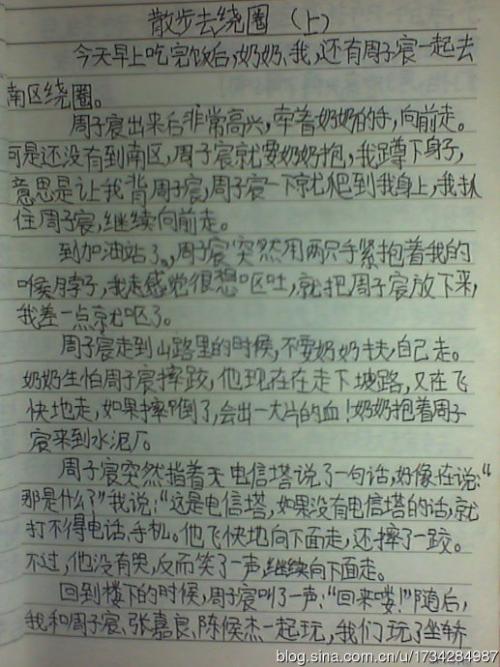 散步去绕圈（上）
今天早上吃完饭后,奶奶、我,还有周子宸一起去
南区绕圈。
周子宸出来后非常高兴,牵着奶奶的手,向前走。
可是还没有到南区,周子宸就要奶奶抱,我蹲下身子,
意思是让我背周子宸,周子宸一下就爬到我身上,我扒
住周子宸,继续向前走。
到加油站了。,周子宸突然用两只手紧抱着我的
喉脖子,我走感觉很想呕吐,就把周子宸放下来,
我差一点就呕了。
周子宸走到山路里的时候,不要奶奶扶,自己走。
奶奶生怕周子宸摔跤,他现在在走下坡路,又在飞
快地走,如果摔倒了,会出一大片的血!奶奶抱着周子
宸来到水泥厂。
周子宸突然指着天 电信塔说了一句话,好像在说:“
那是什么?”我说:“这是电信塔,如果没有电信塔的话,就
打不得电话、手机。他飞快地向下面走,还摔了一跤。
不过,他没有哭,反而笑了一声,继续向下面走。
回到楼下的时候,周子宸叫了一声:“回来喽!”随后,
我和周子宸、张嘉良、陈候杰一起玩,我们玩了坐轿
blog.sina.com.cn/u/1734284987